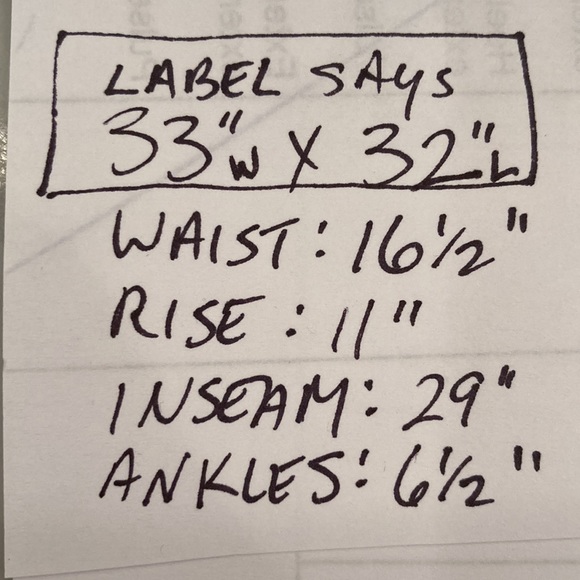 LABEL SAYS
33"W X 32"L
WAIST: 16½"
RISE: 11"
INSEAM: 29"
ANKLES: 6½"